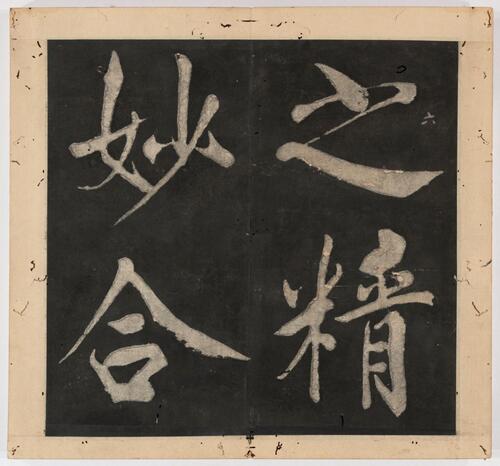 六
之精
妙合